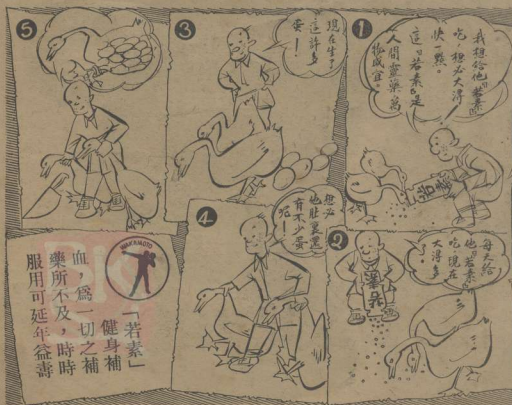 ①
我想給他『若素』
吃,想必大得
快一點。
這『若素』是
人間靈藥萬
物咸宜
若素
②
每天給
他『若素』
吃現在
大得多
了
若素
③
現在生了
這許多
蛋!
④
想必
他肚裏還
有不少蛋
呢!
⑤
WAKAMOTO
「若素」
健身補
血,爲一切之補
藥所不及,時時
服用可延年益壽